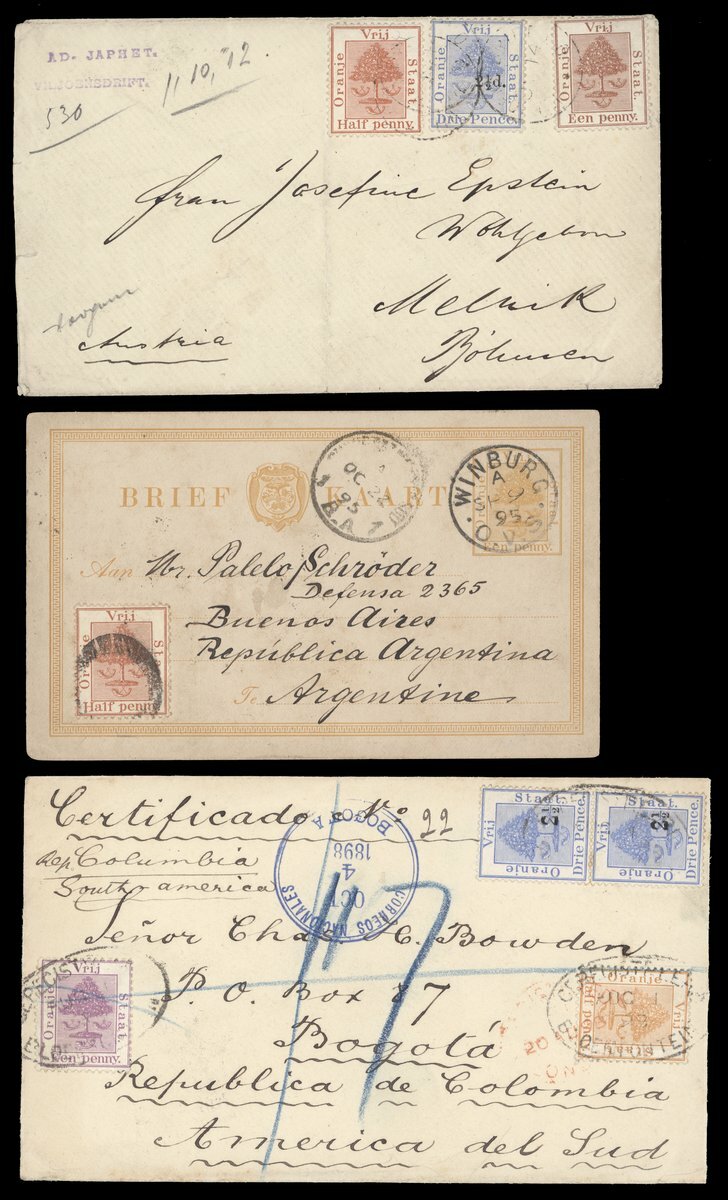 AD. JAPHET.
VILJOENSDRIFT.
530
11, 10, "12
Vrij
Oranje Staat.
Half penny.
Vrij
Oranje Staat.
2½d.
Drie Pence.
Vrij
Oranje Staat.
Een penny.
Frau Josefine Epstein
Wohlgebon
Melnik
Böhmen
Austria
BRIEF KAART
OC 22
95
B.A
WINBURG
A
SE 9
95
O.V.S
Een penny.
Aan Mr. Palelo Schröder
Defensa 2365
Buenos Aires
República Argentina
Te Argentine
Vrij
Oranje Staat.
Half penny
Certificado No 22
Rep. Columbia
South america
CORREOS NACIONALES
OCT
4
1898
BOGOTA
Vrij Staat.
Oranje Drie Pence.
2½
Vrij Staat.
Oranje Drie Pence.
2½
Señor Chas C. Bowden
P. O. Box 87
Bogotá
Republica de Colombia
America del Sud
Vrij
Oranje Staat.
Een penny.
GEREGIST
Oranje
Vrij
Half penny
BLOEMFONTEIN
20